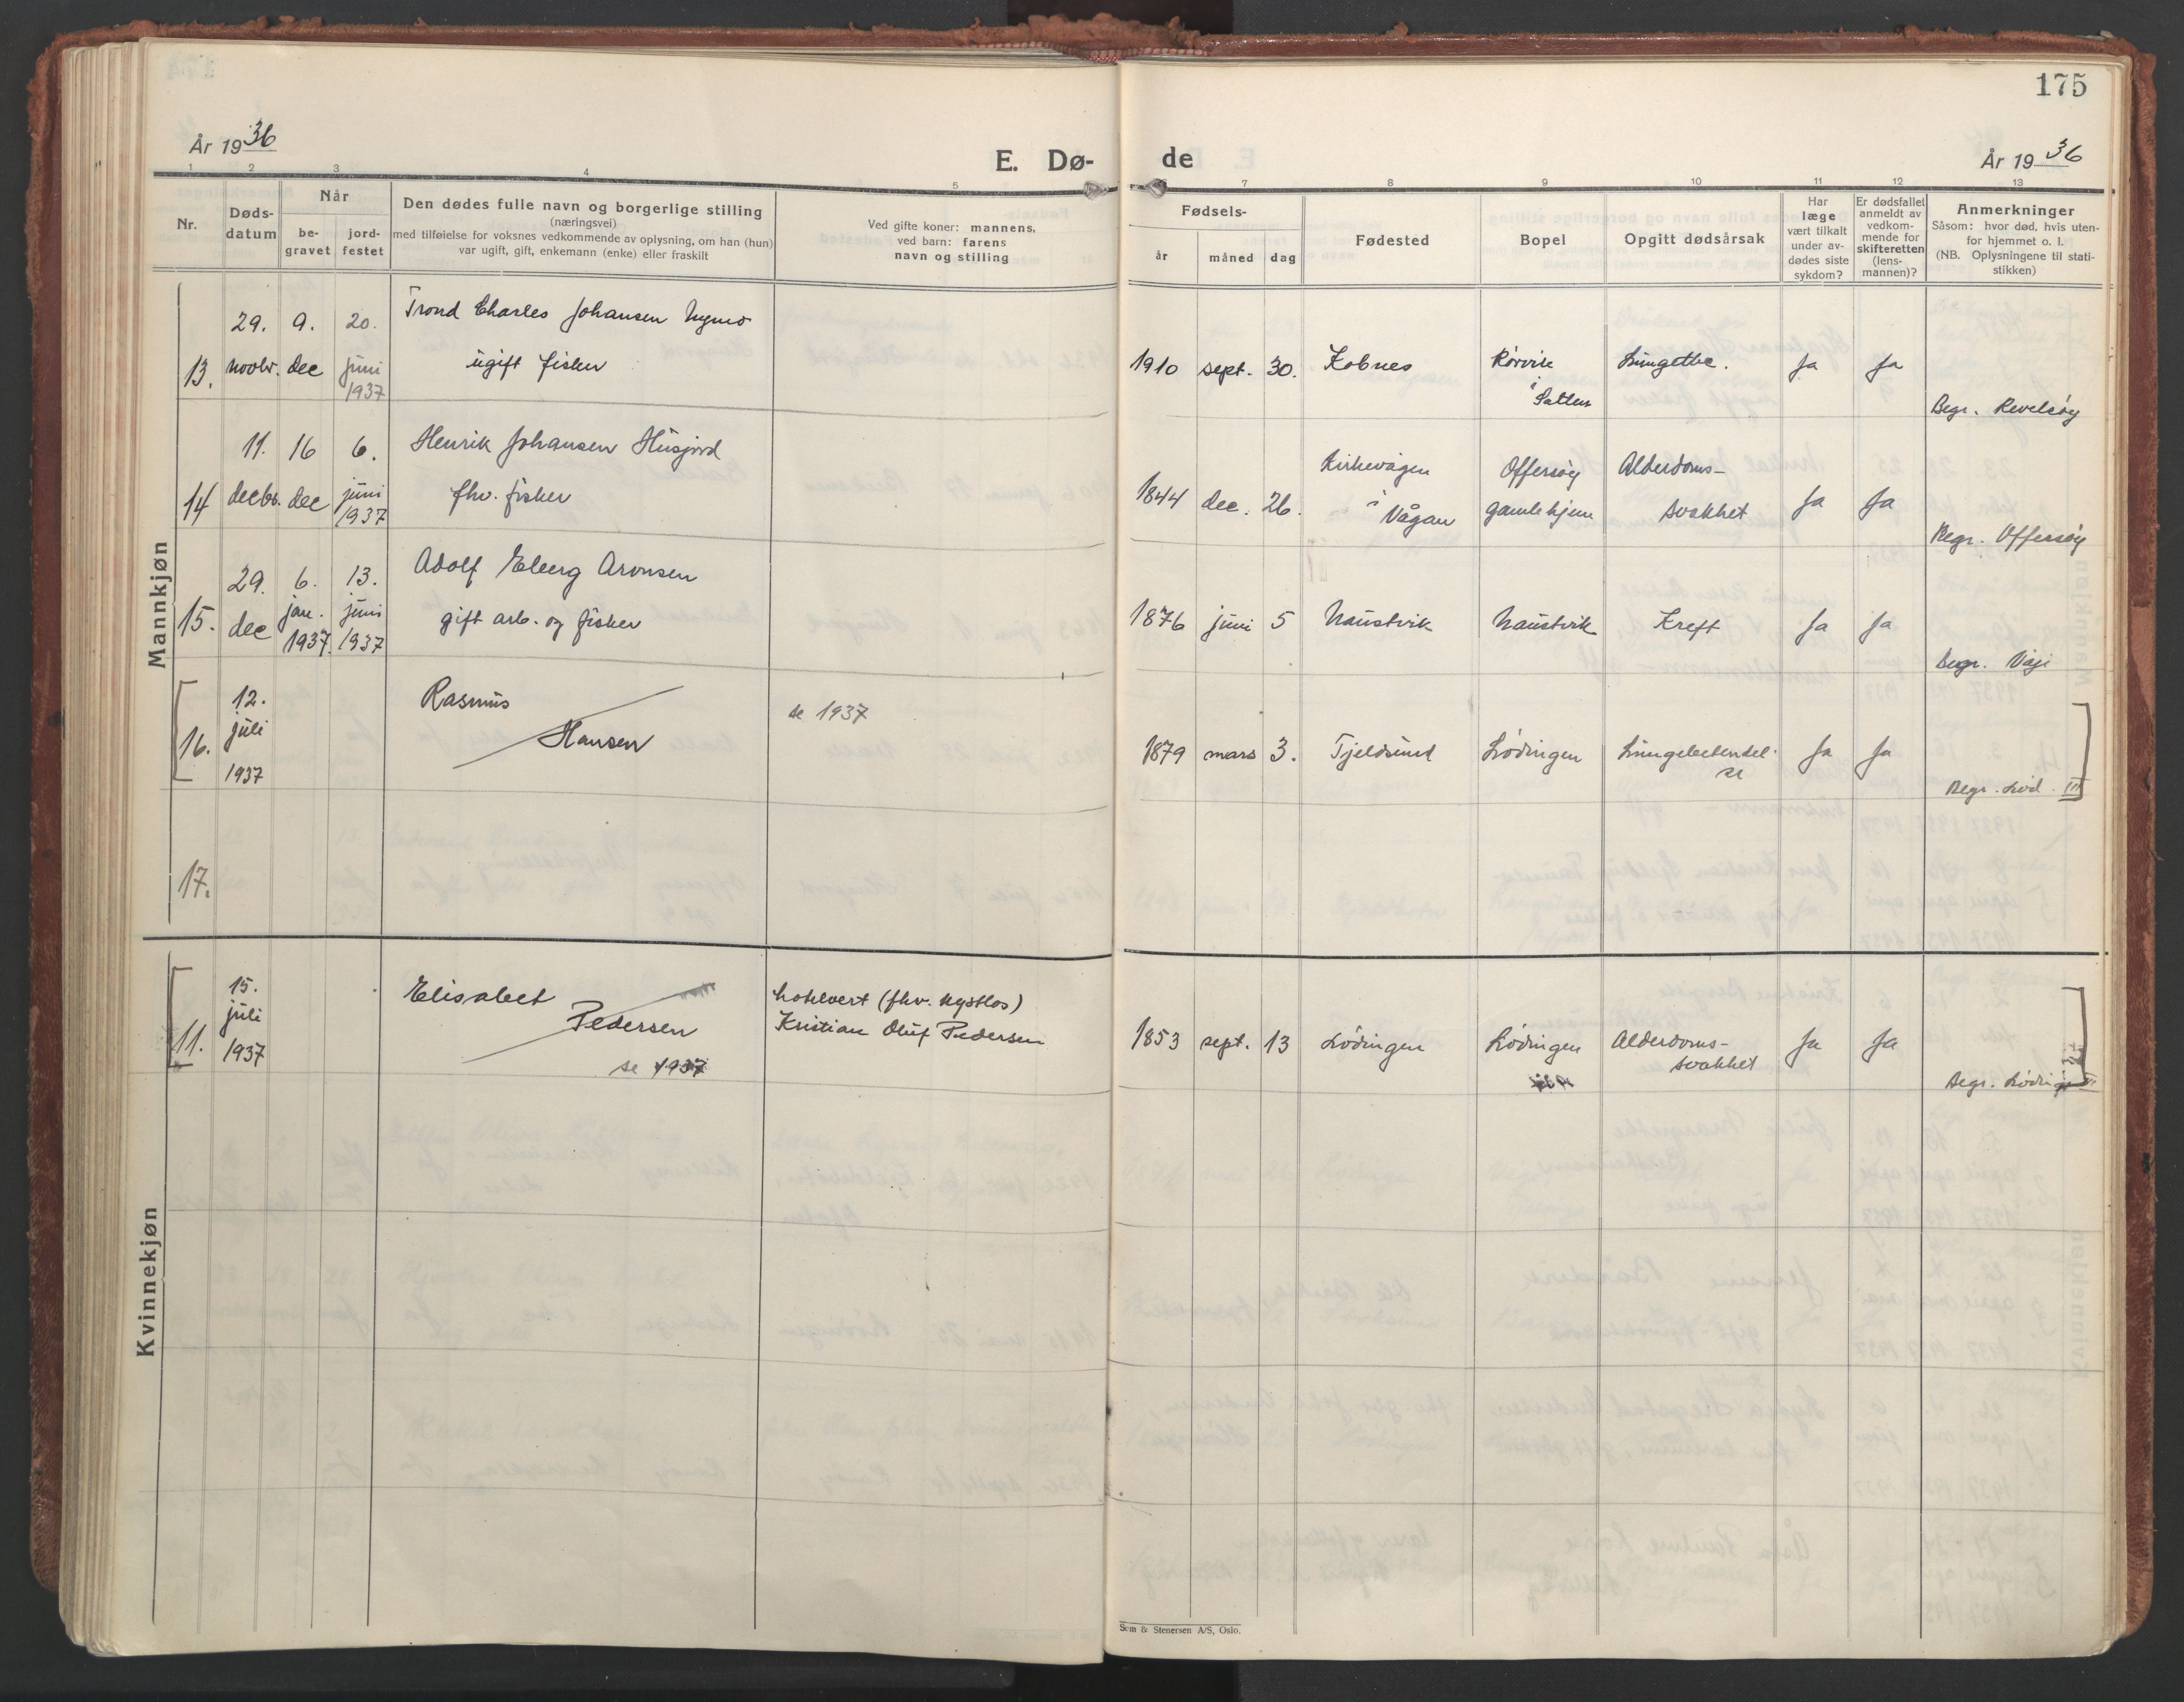 175
År 1936
E. Dø-
de
År 1936
1 2 3 4 5 6 7 8 9 10 11 12 13
Nr.
Døds-
datum
Når
be-
gravet
jord-
festet
Den dødes fulle navn og borgerlige stilling
(næringsvei)
med tilføielse for voksnes vedkommende av oplysning, om han (hun)
var ugift, gift, enkemann (enke) eller fraskilt
Ved gifte koner: mannens,
ved barn: farens
navn og stilling
Fødsels-
år måned dag
Fødested
Bopel
Opgitt dødsårsak
Har
læge
vært tilkalt
under av-
dødes siste
sykdom?
Er dødsfallet
anmeldt av
vedkom-
mende for
skifteretten
(lens-
mannen)?
Anmerkninger
Såsom: hvor død, hvis uten-
for hjemmet o. l.
(NB. Oplysningene til stati-
stikken)
Mannkjøn
13.
29.
novbr.
9.
dec
20.
juni
1937
Trond Charles Johansen Nymo
ugift fisker
1910 sept. 30.
Kobnes
Rørvik
i
Salten
Lungetbc.
Ja
Ja
Begr. Revelsøy
14
11.
decbr.
16
dec
6.
juni
1937
Henrik Johansen Husjord
fhv. fisker
1844 dec. 26.
Kirkevågen
i Vågan
Offersøy
gamlehjem
Alderdoms-
svakhet
Ja
Ja
Begr. Offersøy
15.
29.
dec
6.
jan.
1937.
13.
juni
1937
Adolf Eberg Aronsen
gift arb. og fisker
1876 juni 5
Naustvik
Naustvik
Kreft
Ja
Ja
Begr. Vågi
16.
12.
juli
1937
Rasmus
Hansen
se 1937
1879 mars 3.
Tjeldsund
Lødingen
Lungebetendel-
se
Ja
Ja
Begr. Lød. III
17.
Kvinnekjøn
11.
15.
juli
1937
Elisabet
Pedersen
se 1937
hotelvert (fhv. kystlos)
Kristian Oluf Pedersen
1853 sept. 13
Lødingen
Lødingen
Alderdoms-
svakhet
Ja
Ja
Begr. Lødingen
Sem & Stenersen A/S, Oslo.